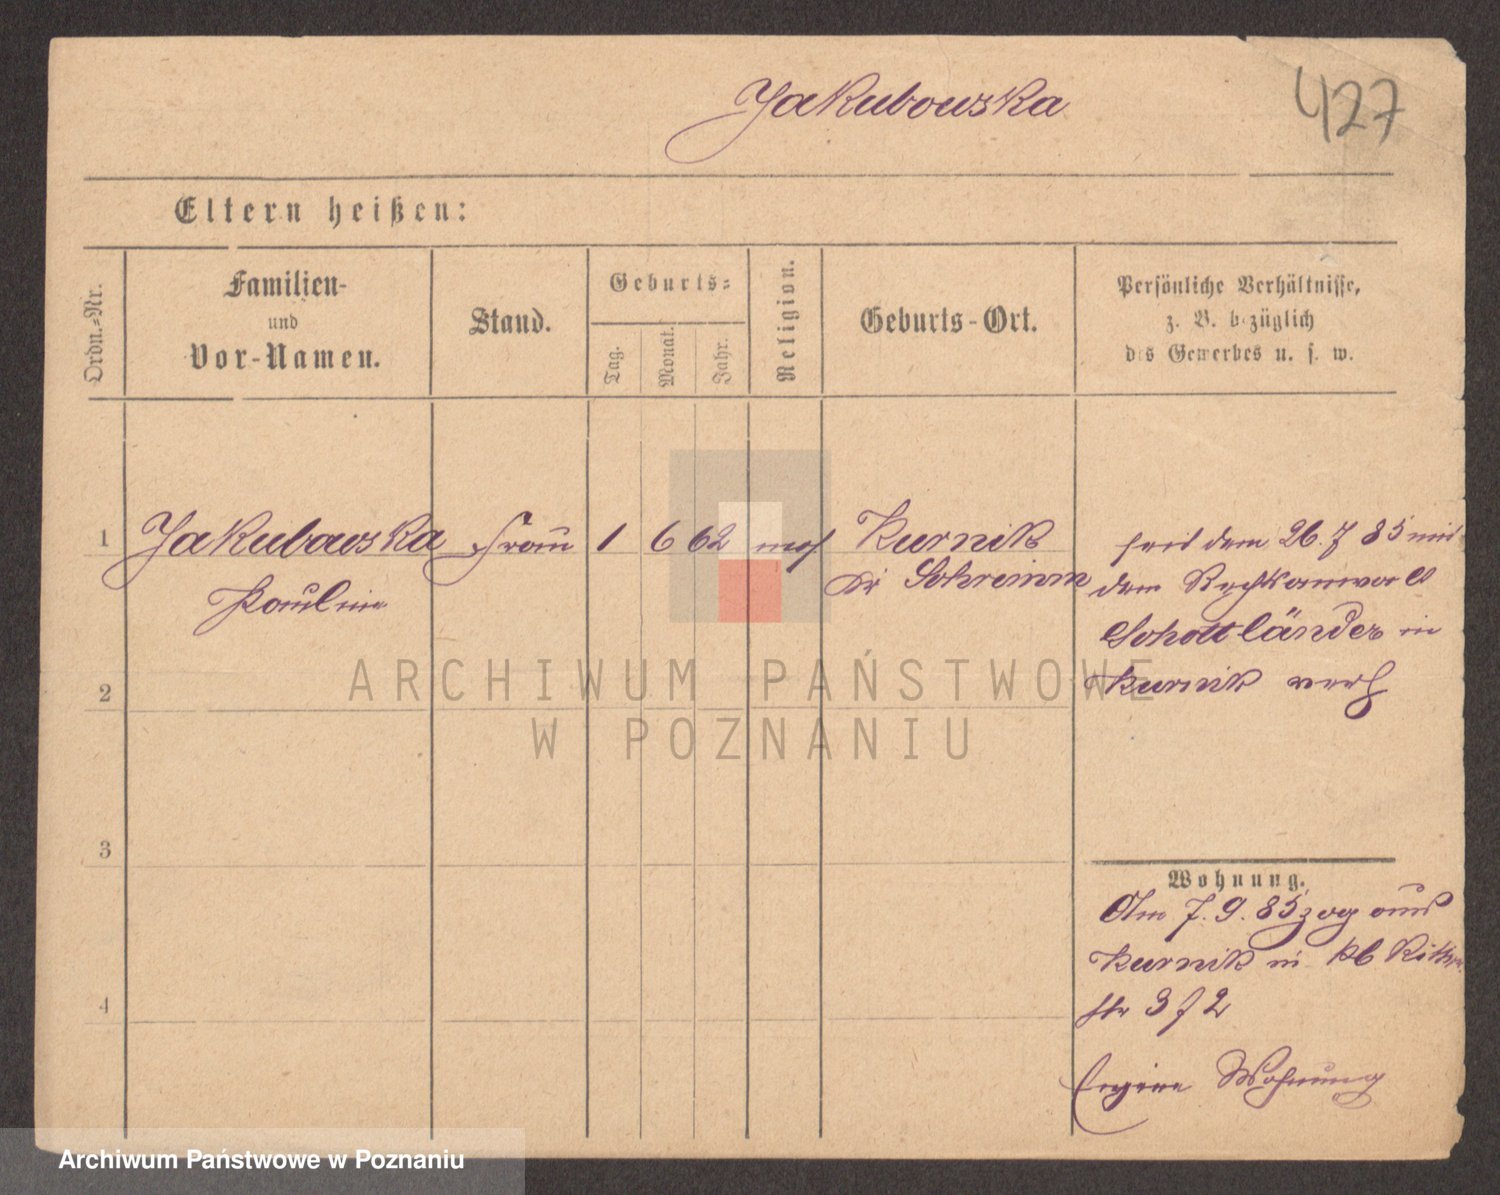 Jakubowska
427
Eltern heißen:
Ordn.-Nr.
Familien-
und
Vor-Namen.
Stand.
Geburts-
Tag.
Monat.
Jahr.
Religion.
Geburts-Ort.
Persönliche Verhältnisse,
z. B. bezüglich
des Gewerbes u. s. w.
1 Jakubowska Frau 1 6 62 mos Kurnik
Pauline
Kr Schrimm
seit dem 26.7 85 mit
dem Rechtsanwalt
Schottländer in
Kurnik verh
2
3
4
Wohnung.
Am 7.9.85 zog aus
Kurnik in
str 3 I 2
Eigene Wohnung
ARCHIWUM PAŃSTWOWE
W POZNANIU
Archiwum Państwowe w Poznaniu